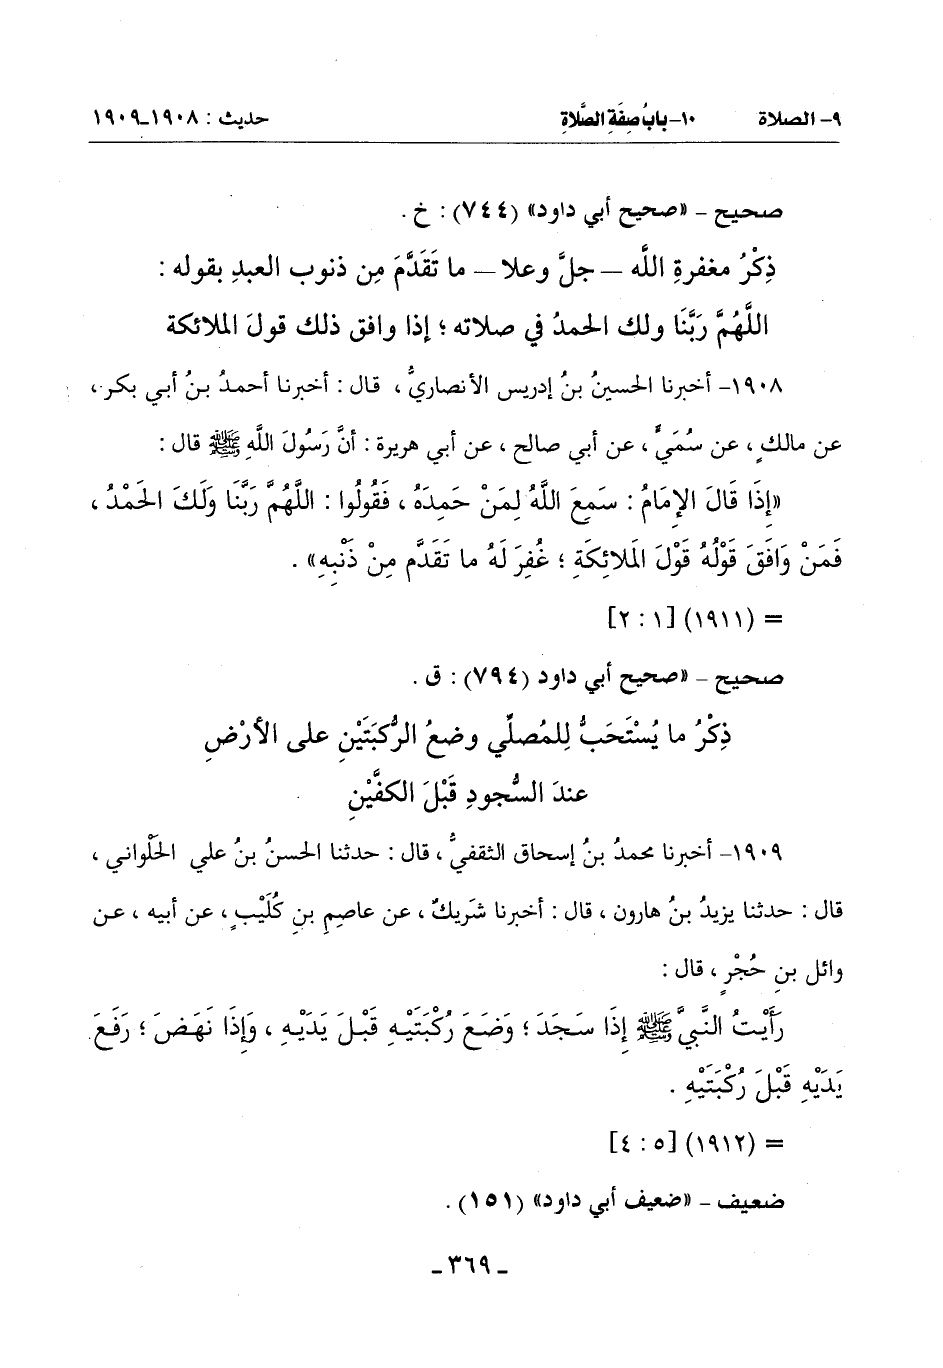 ٩- الصلاة ١٠- بابُ صِفَةِ الصَّلاةِ حديث : ١٩٠٨ـ١٩٠٩
صحيح – «صحيح أبي داود» (٧٤٤) : خ .
ذِكْرُ مغفرةِ اللَّه – جلَّ وعلا – ما تَقَدَّمَ مِن ذنوب العبدِ بقوله :
اللَّهُمَّ رَبَّنَا ولك الحمدُ في صلاته ؛ إذا وافق ذلك قولَ الملائكة
١٩٠٨- أخبرنا الحسينُ بنُ إدريس الأنصاريُّ ، قال : أخبرنا أحمدُ بنُ أبي بكر ،
عن مالكٍ ، عن سُمَيٍّ ، عن أبي صالح ، عن أبي هريرة : أنَّ رَسُولَ اللَّهِ ﷺ قال :
«إذَا قَالَ الإمَامُ : سَمِعَ اللَّهُ لِمَنْ حَمِدَهُ ، فَقُولُوا : اللَّهُمَّ رَبَّنَا وَلَكَ الحَمْدُ ،
فَمَنْ وَافَقَ قَوْلُهُ قَوْلَ المَلائِكَةِ ؛ غُفِرَ لَهُ ما تَقَدَّم مِنْ ذَنْبِهِ» .
= (١٩١١) [١ : ٢]
صحيح – «صحيح أبي داود (٧٩٤) : ق .
ذِكْرُ ما يُسْتَحَبُّ لِلمُصلِّي وضعُ الرُّكبَتَيْنِ على الأرْضِ
عندَ السُّجودِ قَبْلَ الكفَّيْنِ
١٩٠٩- أخبرنا محمدُ بنُ إسحاق الثقفيُّ ، قال : حدثنا الحسنُ بنُ علي الحَلْواني ،
قال : حدثنا يزيدُ بنُ هارون ، قال : أخبرنا شَريكٌ ، عن عاصِمِ بنِ كُلَيْبٍ ، عن أبيه ، عن
وائل بنِ حُجْرٍ ، قال :
رَأَيْتُ النَّبيَّ ﷺ إِذَا سَجَدَ ؛ وَضَعَ رُكْبَتَيْهِ قَبْلَ يَدَيْهِ ، وَإِذَا نَهَضَ ؛ رَفَعَ
يَدَيْهِ قَبْلَ رُكْبَتَيْهِ .
= (١٩١٢) [٥ : ٤]
ضعيف – «ضعيف أبي داود» (١٥١) .
ـ ٣٦٩ ـ